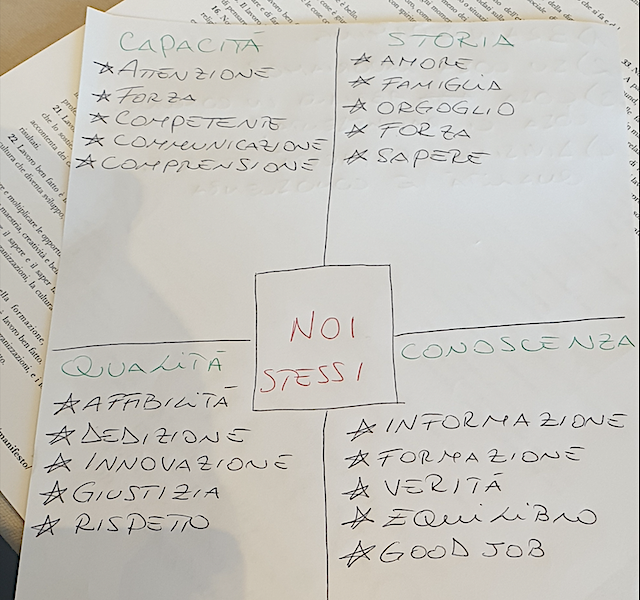 CAPACITÁ
☆ ATTENZIONE
☆ FORZA
☆ COMPETENTE
☆ COMMUNICAZIONE
☆ COMPRENSIONE
STORIA
☆ AMORE
☆ FAMIGLIA
☆ ORGOGLIO
☆ FORZA
☆ SAPERE
NOI
STESSI
QUALITÁ
☆ AFFIBILITÁ
☆ DEDIZIONE
☆ INNOVAZIONE
☆ GIUSTIZIA
☆ RISPETTO
CONOSCENZA
☆ INFORMAZIONE
☆ FORMAZIONE
☆ VERITÁ
☆ EQUILIBRO
☆ GOOD JOB
21 Lavoro
22 Lavoro ben fatto è
manifesto/